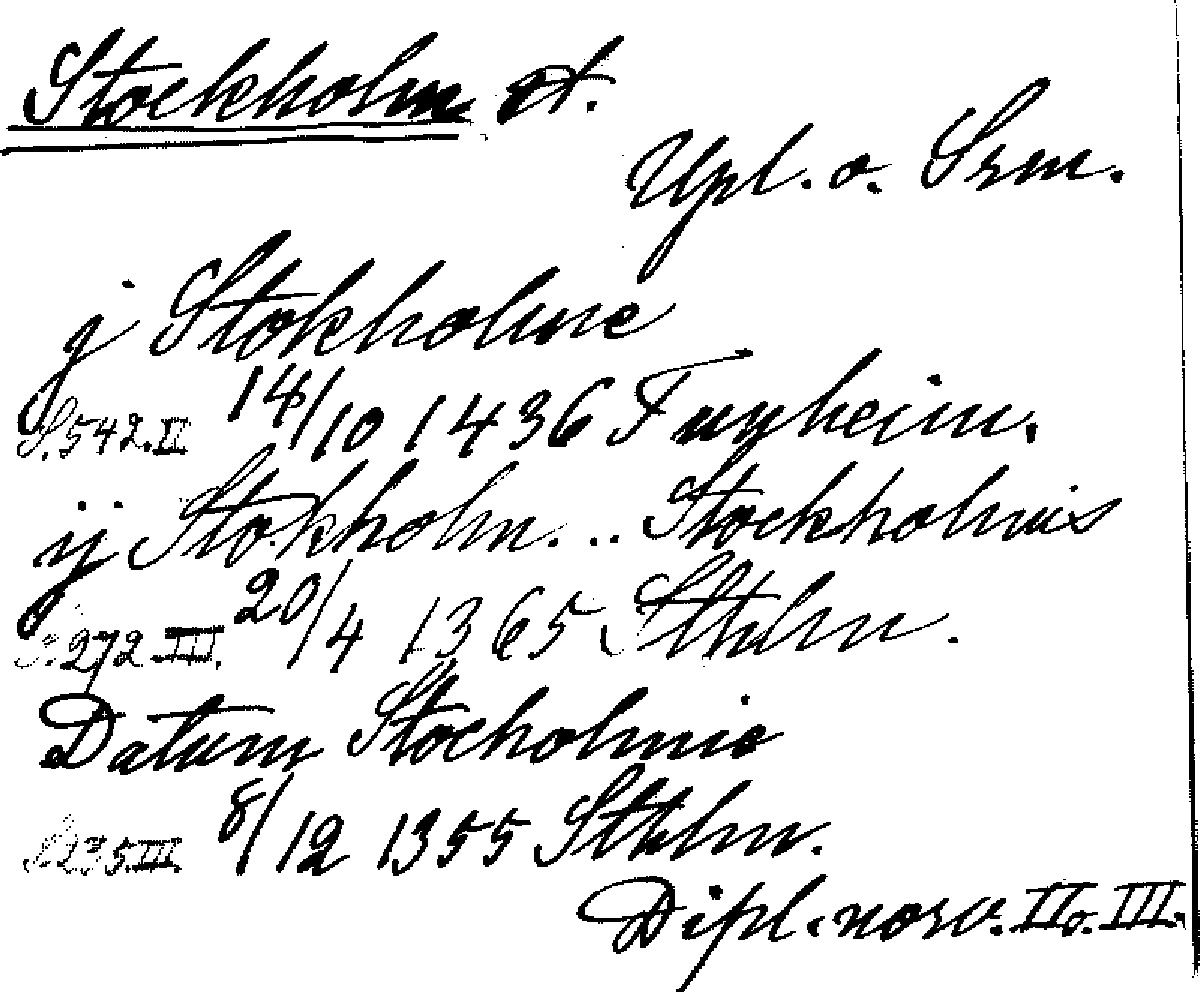 Stockholm st.
Upl. o. Srm.
j Stokholme
S. 542. II 14/10 1436 Funheim.
ij Stokholm... Stockholmis
S. 272 III. 20/4 1365 Sthlm.
Datum Stocholmie
S. 235 III. 8/12 1355 Sthlm.
Dipl. norv. II o. III.